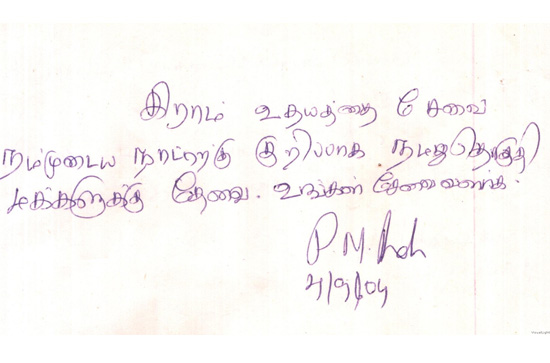 கிராம உதயத்தை சேவை
நம்முடைய நாட்டிற்கு குறிப்பாக நமது தொகுதி
மக்களுக்கு தேவை. உங்கள் சேவை வளர்க.
P. M.
4/9/04